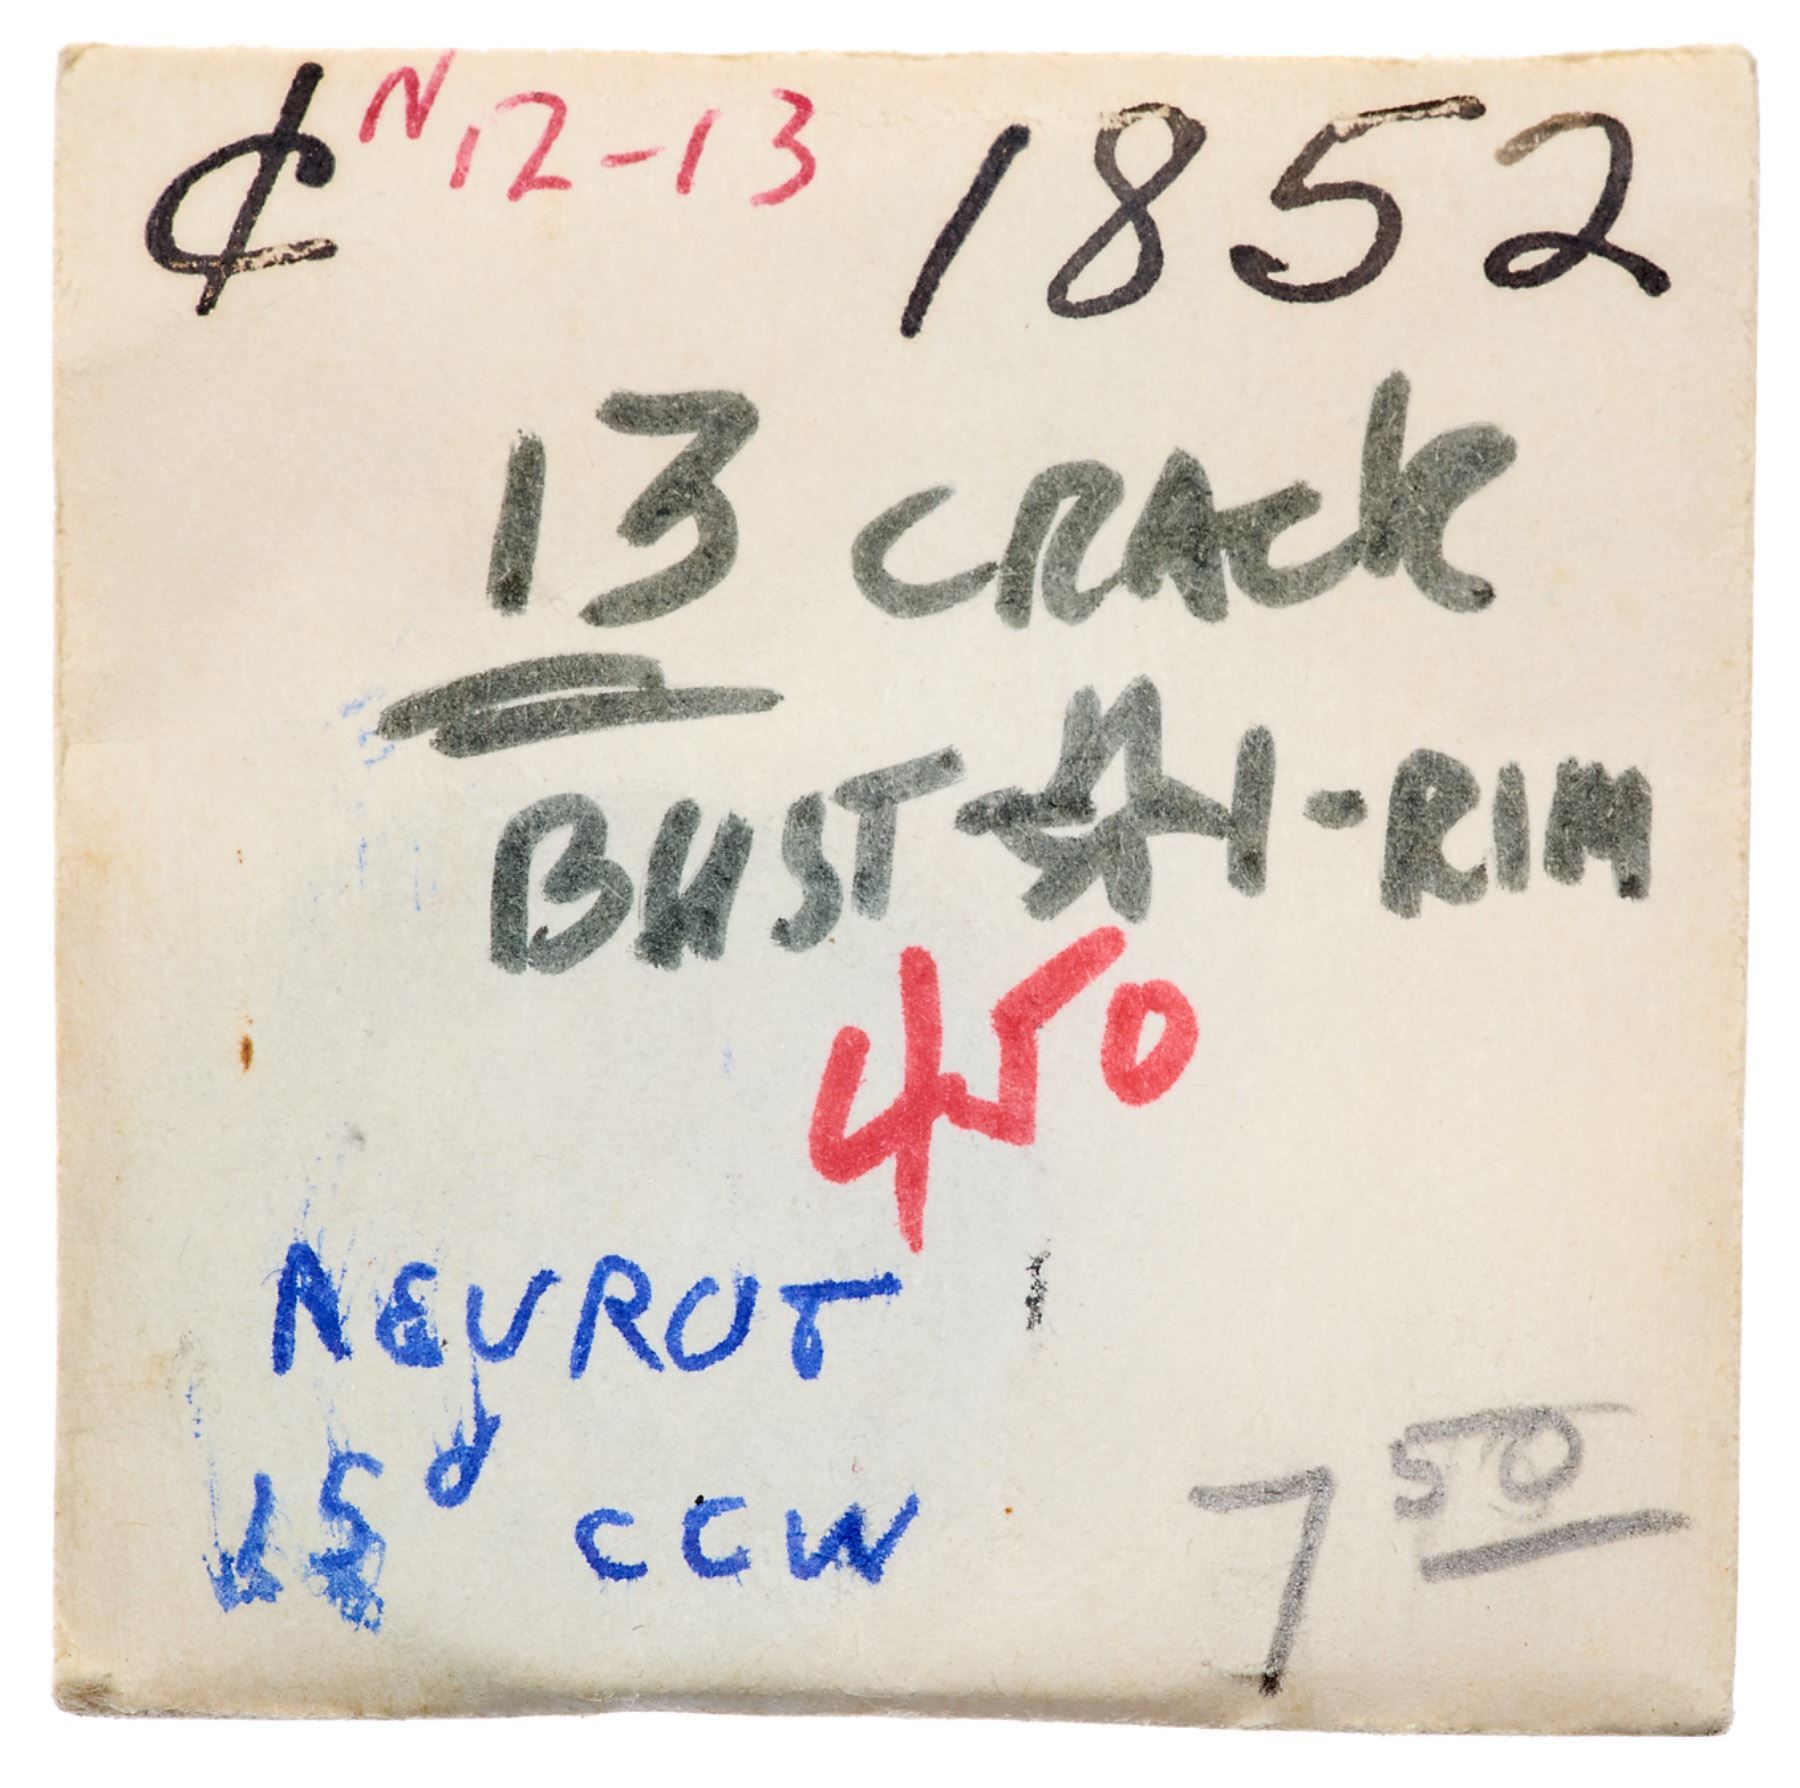 ¢ N12-13 1852
13 CRACK
BUST-☆1-RIM
450
REV ROT
15° CCW
7 50